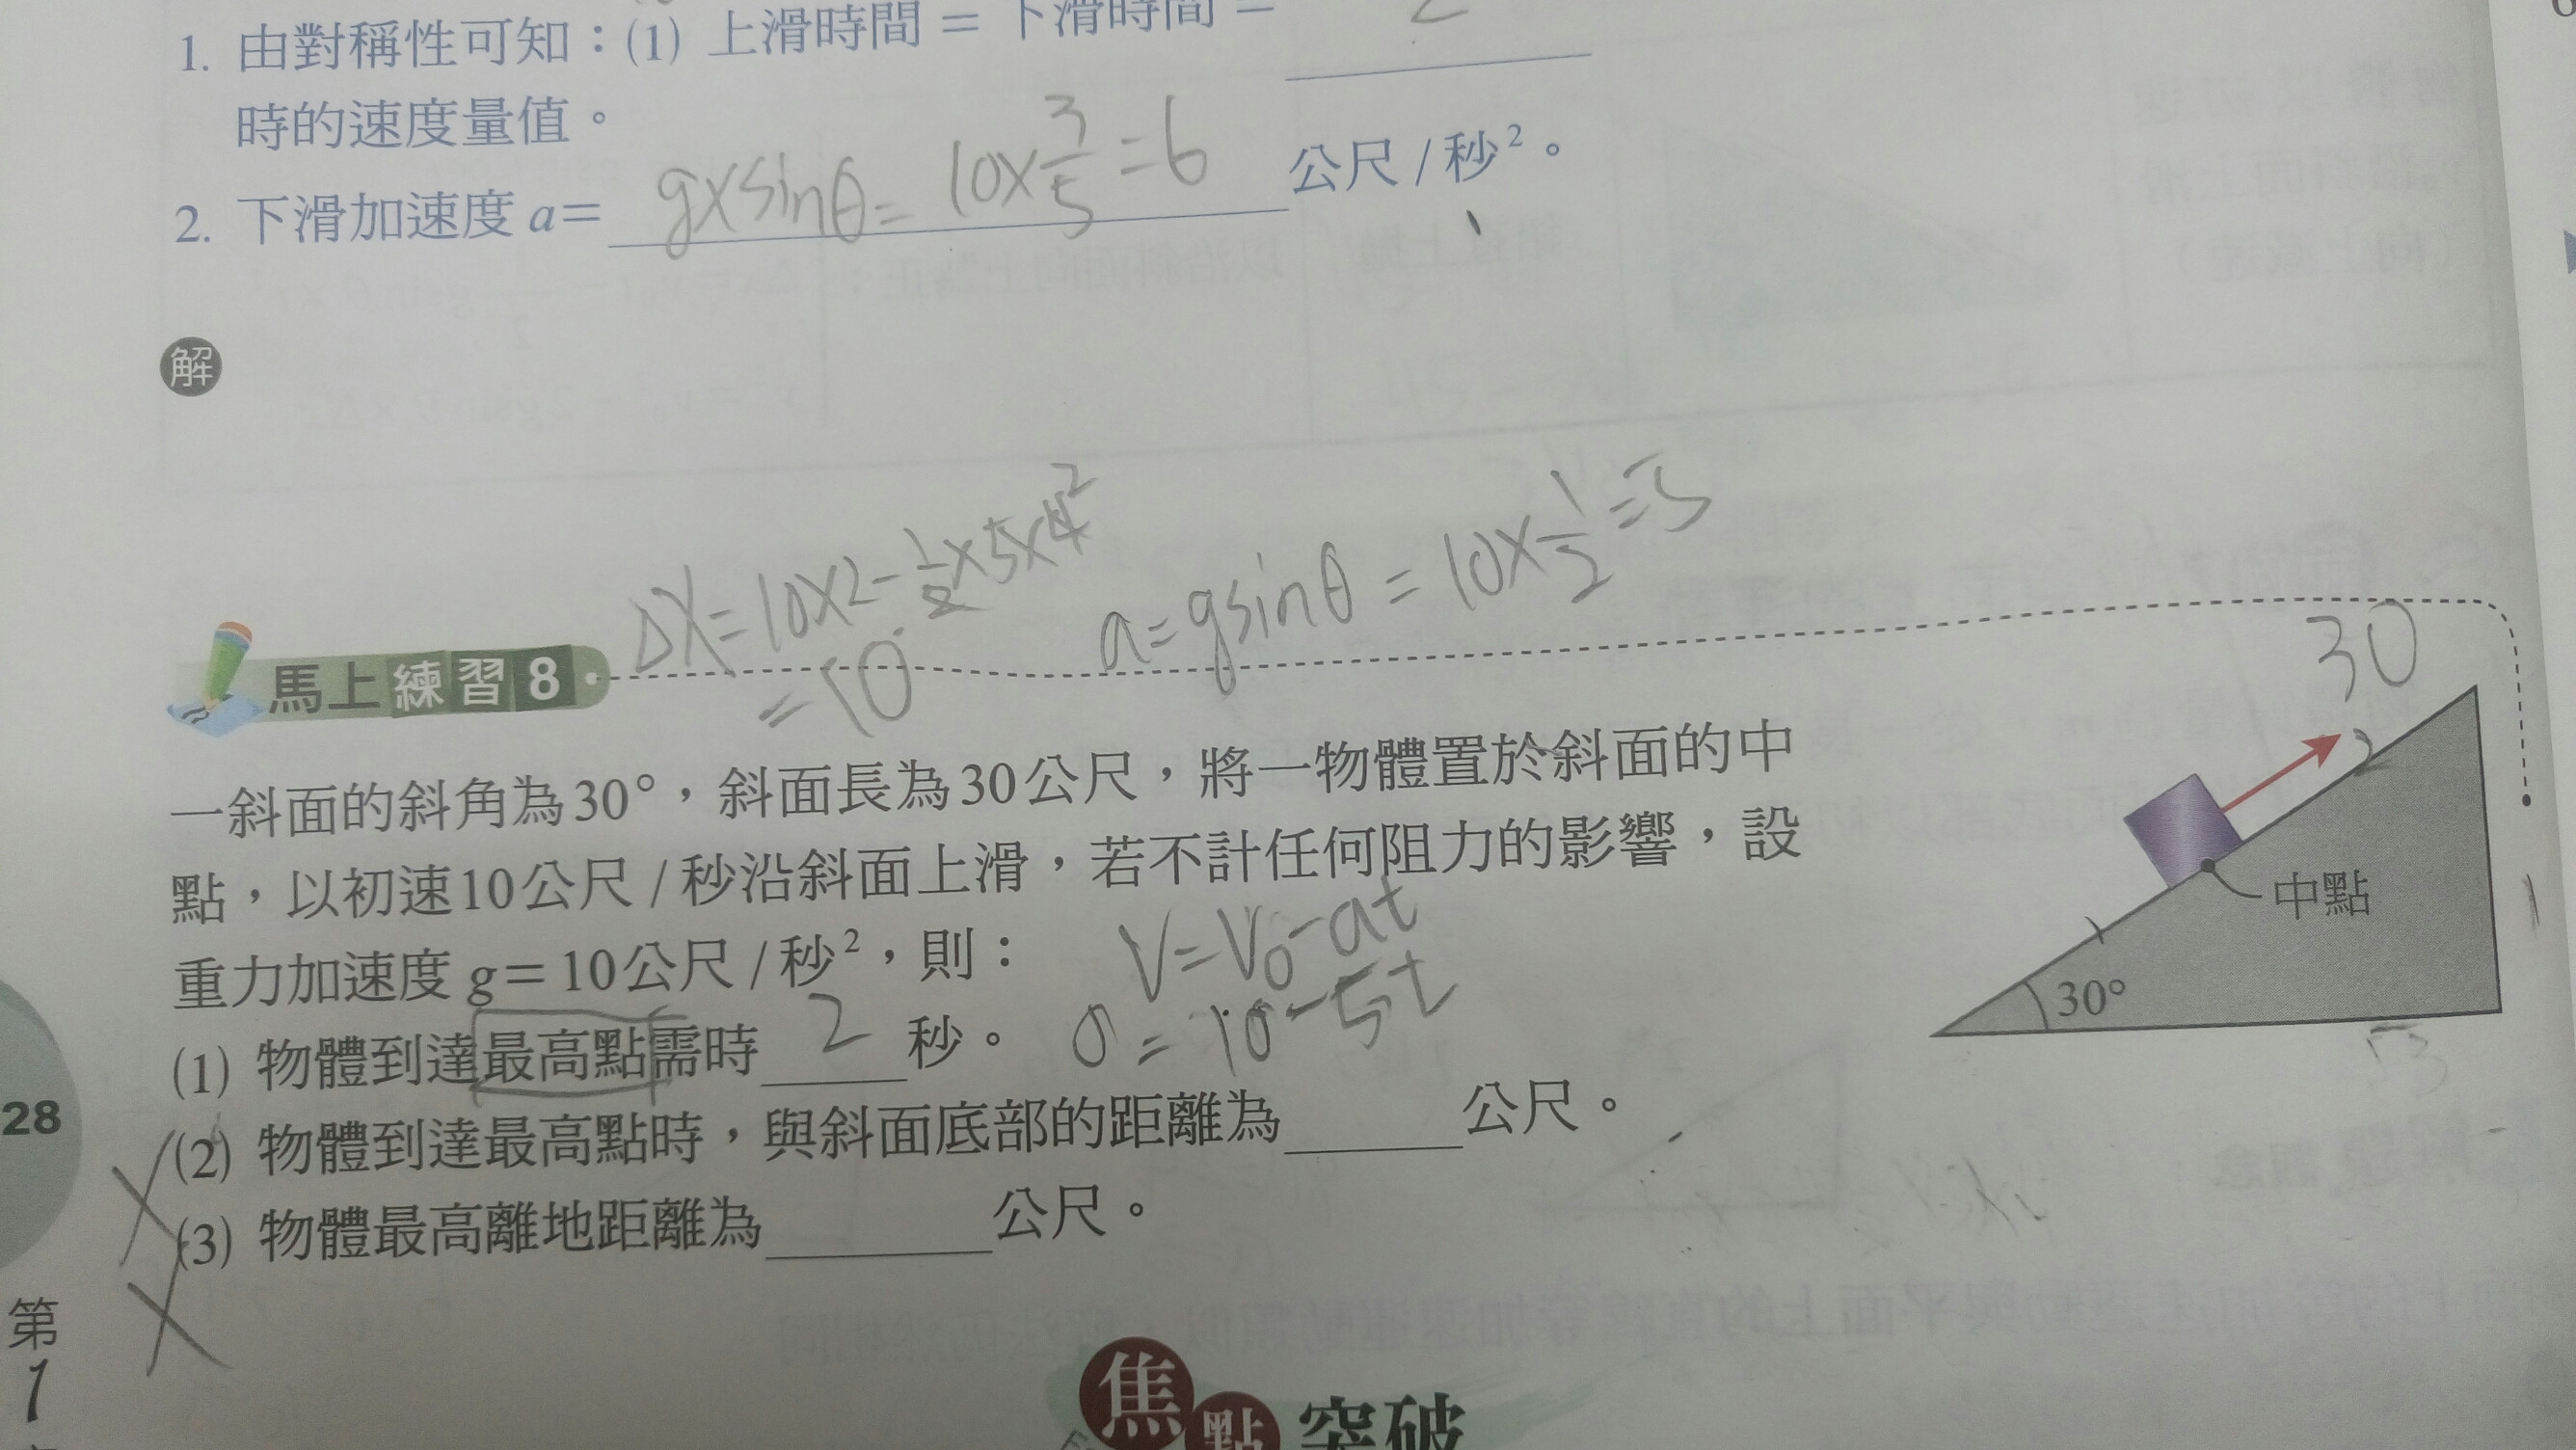 1. 由對稱性可知：(1) 上滑時間 = 下滑時間 = 2
時的速度量值。
2. 下滑加速度 a= g×sinθ= 10×3/5 =6 公尺/秒²。
解
ΔX= 10×2-1/2×5×4²
=10
a=gsinθ = 10×1/2=5
馬上練習8
30
一斜面的斜角為30°，斜面長為30公尺，將一物體置於斜面的中
點，以初速10公尺/秒沿斜面上滑，若不計任何阻力的影響，設
重力加速度 g=10公尺/秒²，則：
V=V₀-at
0=10-5t
中點
30°
(1) 物體到達最高點需時 2 秒。
(2) 物體到達最高點時，與斜面底部的距離為______公尺。
(3) 物體最高離地距離為______公尺。
28
第
1
焦點 突破